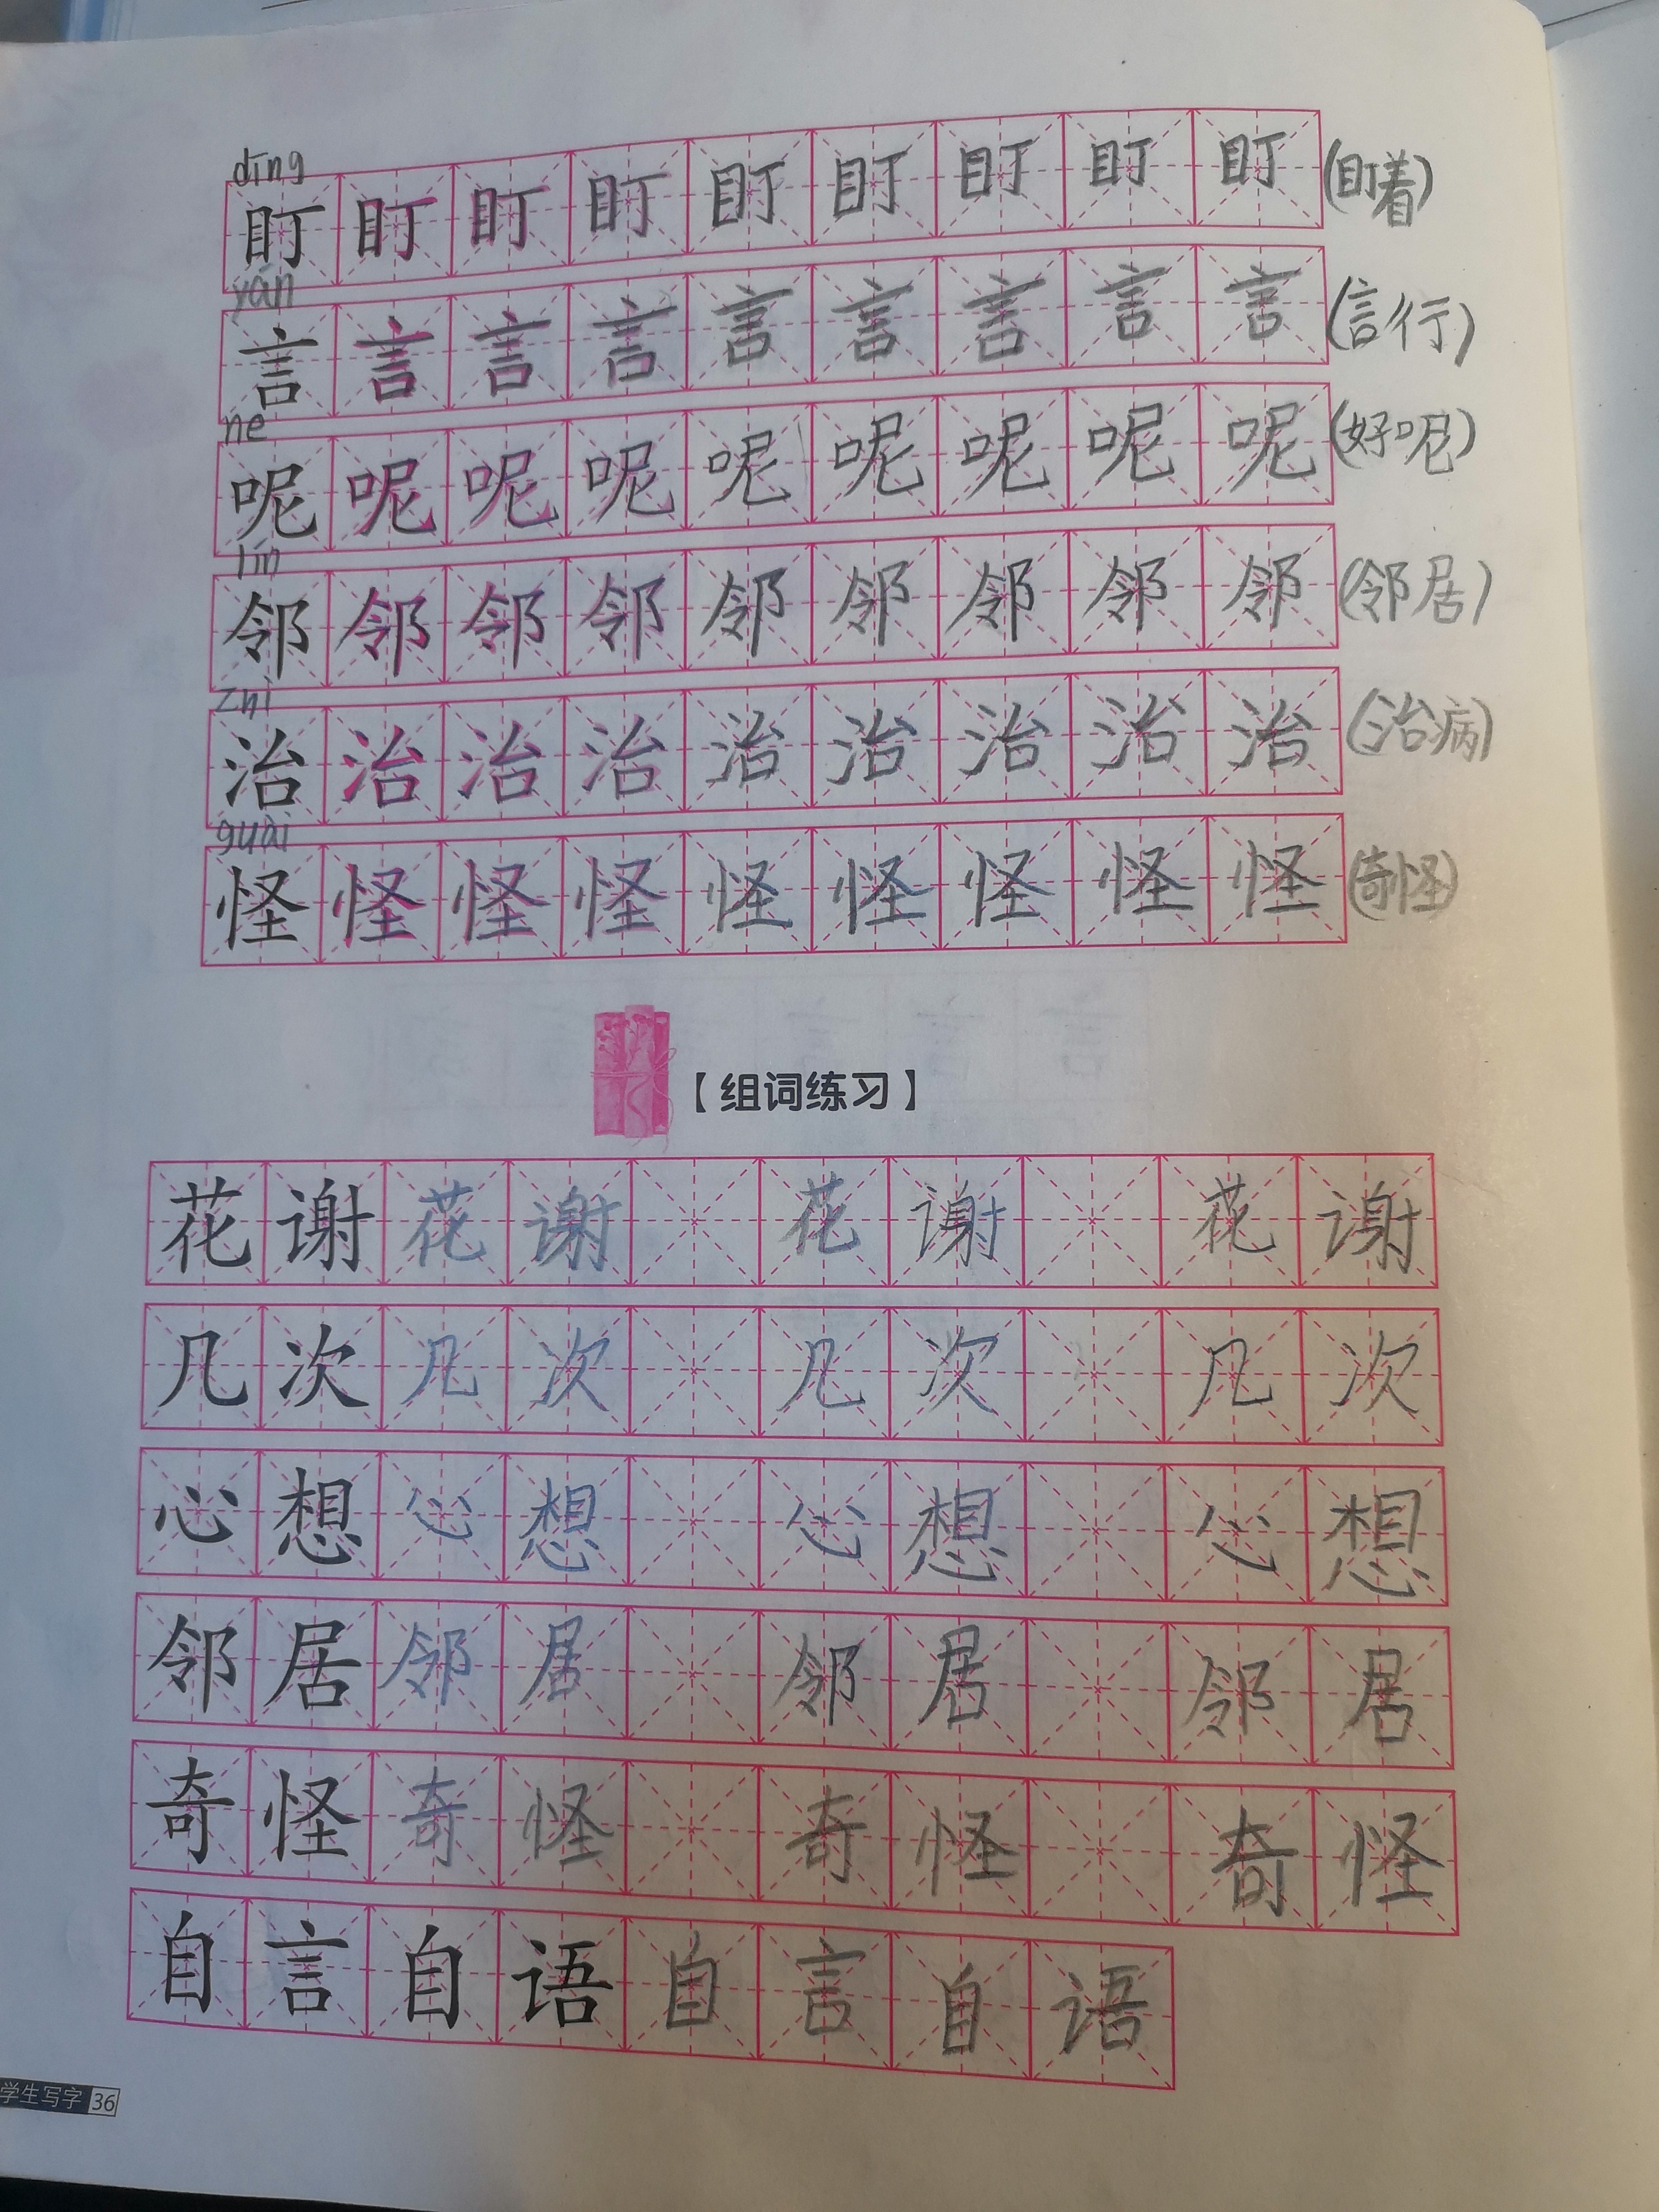 dīng
盯盯盯盯盯盯盯盯盯(盯着)
yán
言言言言言言言言言(言行)
ne
呢呢呢呢呢呢呢呢呢(好呢)
lín
邻邻邻邻邻邻邻邻邻(邻居)
zhì
治治治治治治治治治(治病)
guài
怪怪怪怪怪怪怪怪怪(奇怪)
【组词练习】
花谢花谢 花谢 花谢
几次几次 几次 几次
心想心想 心想 心想
邻居邻居 邻居 邻居
奇怪奇怪 奇怪 奇怪
自言自语自言自语
学生写字 36